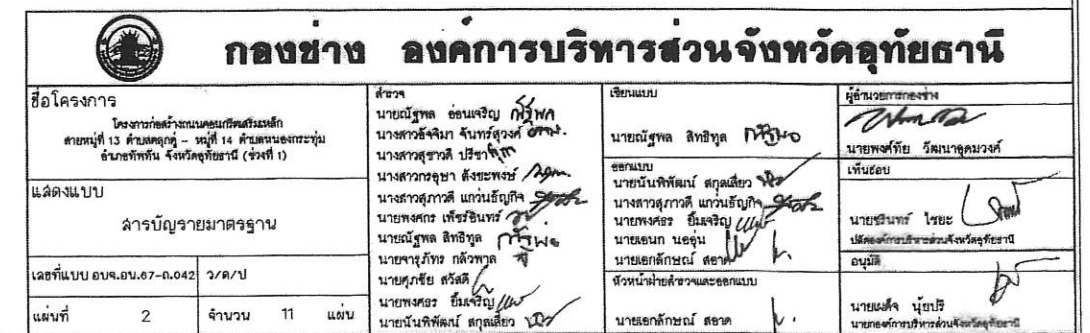 กองช่าง องค์การบริหารส่วนจังหวัดอุทัยธานี
ชื่อโครงการ
โครงการก่อสร้างถนนคอนกรีตเสริมเหล็ก
สายหมู่ที่ 13 ตำบลตลุกดู่ - หมู่ที่ 14 ตำบลหนองกระทุ่ม
อำเภอทัพทัน จังหวัดอุทัยธานี (ช่วงที่ 1)
แสดงแบบ
สารบัญรายมาตรฐาน
เลขที่แบบ อบจ.อน.67-ถ.042 ว/ด/ป
แผ่นที่ 2 จำนวน 11 แผ่น
สำรวจ
นายณัฐพล อ่อนเจริญ
นางสาวอัจจิมา จันทร์สุวงศ์
นางสาวสุชาวดี ปรีชา
นางสาวกรอุษา ตังชะพงษ์
นางสาวสุภาวดี แกว่นธัญกิจ
นายพงศกร เพ็ชรอินทร์
นายณัฐพล สิทธิทูล
นายจารุภัทร กล้วพาล
นายศุภชัย สวัสดี
นายพงศธร ยิ้มเจริญ
นายนันพิพัฒน์ สกุลเสี่ยว
เขียนแบบ
นายณัฐพล สิทธิทูล
ออกแบบ
นายนันพิพัฒน์ สกุลเสี่ยว
นางสาวสุภาวดี แกว่นธัญกิจ
นายพงศธร ยิ้มเจริญ
นายเอนก นออุ่น
นายเอกลักษณ์ สอาด
หัวหน้าฝ่ายสำรวจและออกแบบ
นายเอกลักษณ์ สอาด
ผู้อำนวยการกองช่าง
นายพงศ์ทัย วัฒนาอุดมวงศ์
เห็นชอบ
นายชรินทร์ ไรยะ
ปลัดองค์การบริหารส่วนจังหวัดอุทัยธานี
อนุมัติ
นายเผด็จ นุ้ยปรี
นายกองค์การบริหารส่วนจังหวัดอุทัยธานี